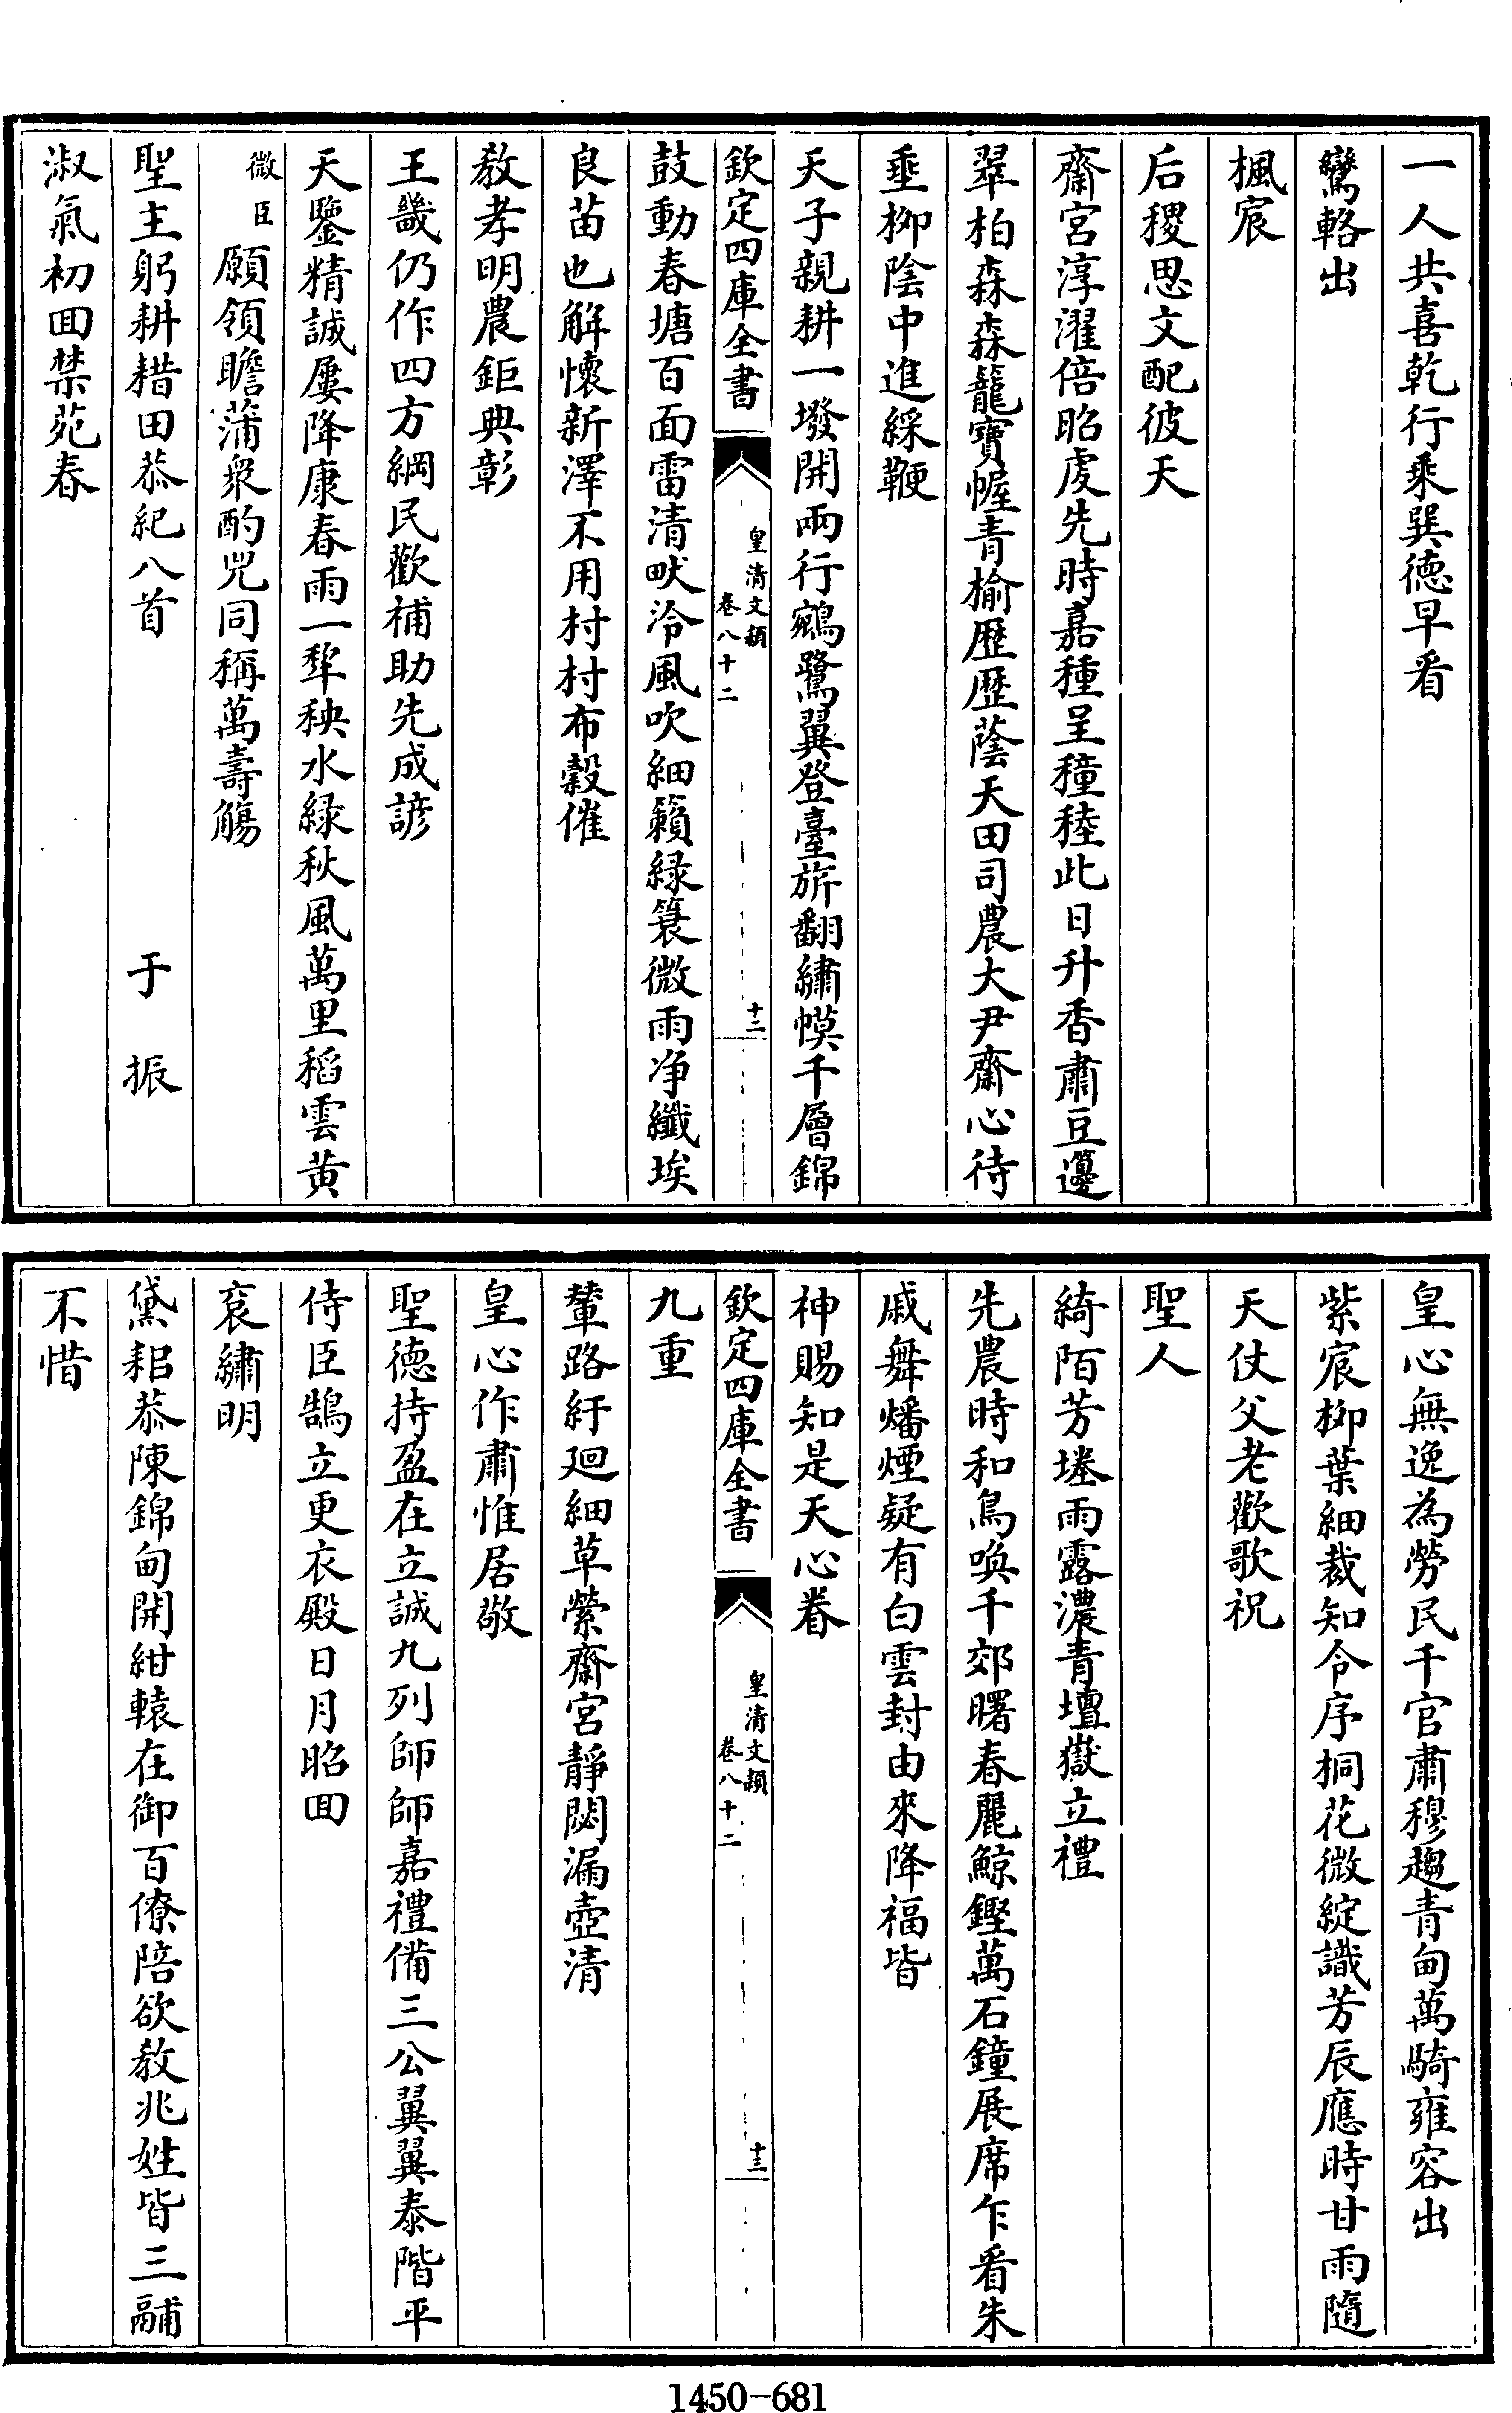 一人共喜乾行乘巽德早看
鸞輅出
楓宸
后稷思文配彼天
齋宮淳濯倍昭虔先時嘉種呈穜稑此日升香肅豆籩
翠柏森森籠寶幄青榆歴歴蔭天田司農大尹齋心待
垂栁陰中進綵鞭
天子親耕一墢開兩行鵷鷺翼登臺旂翻繡幙千層錦
欽定四庫全書
皇清文穎
卷八十二
十二
鼓動春塘百面雷清畎泠風吹細籟緑簑微雨净纖埃
良苗也解懷新澤不用村村布穀催
教孝明農鉅典彰
王畿仍作四方綱民歡補助先成諺
天鑒精誠屢降康春雨一犂秧水緑秋風萬里稻雲黄
微臣願領瞻蒲衆酌兕同稱萬壽觴
聖主躬耕耤田恭紀八首 于振
淑氣初回禁苑春
皇心無逸為勞民千官肅穆趨青甸萬騎雍容出
紫宸栁葉細裁知令序桐花微綻識芳辰應時甘雨隨
天仗父老歡歌祝
聖人
綺陌芳塍雨露濃青壇嶽立禮
先農時和鳥喚千郊曙春麗鯨鏗萬石鐘展席乍看朱
戚舞燔煙疑有白雲封由來降福皆
神賜知是天心眷
欽定四庫全書
皇清文穎
卷八十二
十三
九重
輦路紆廻細草縈齋宮靜閟漏壺清
皇心作肅惟居敬
聖德持盈在立誠九列師師嘉禮備三公翼翼泰階平
侍臣鵠立更衣殿日月昭回
衮繡明
黛耜恭陳錦甸開紺轅在御百僚陪欲教兆姓皆三鬴
不惜
1450-681